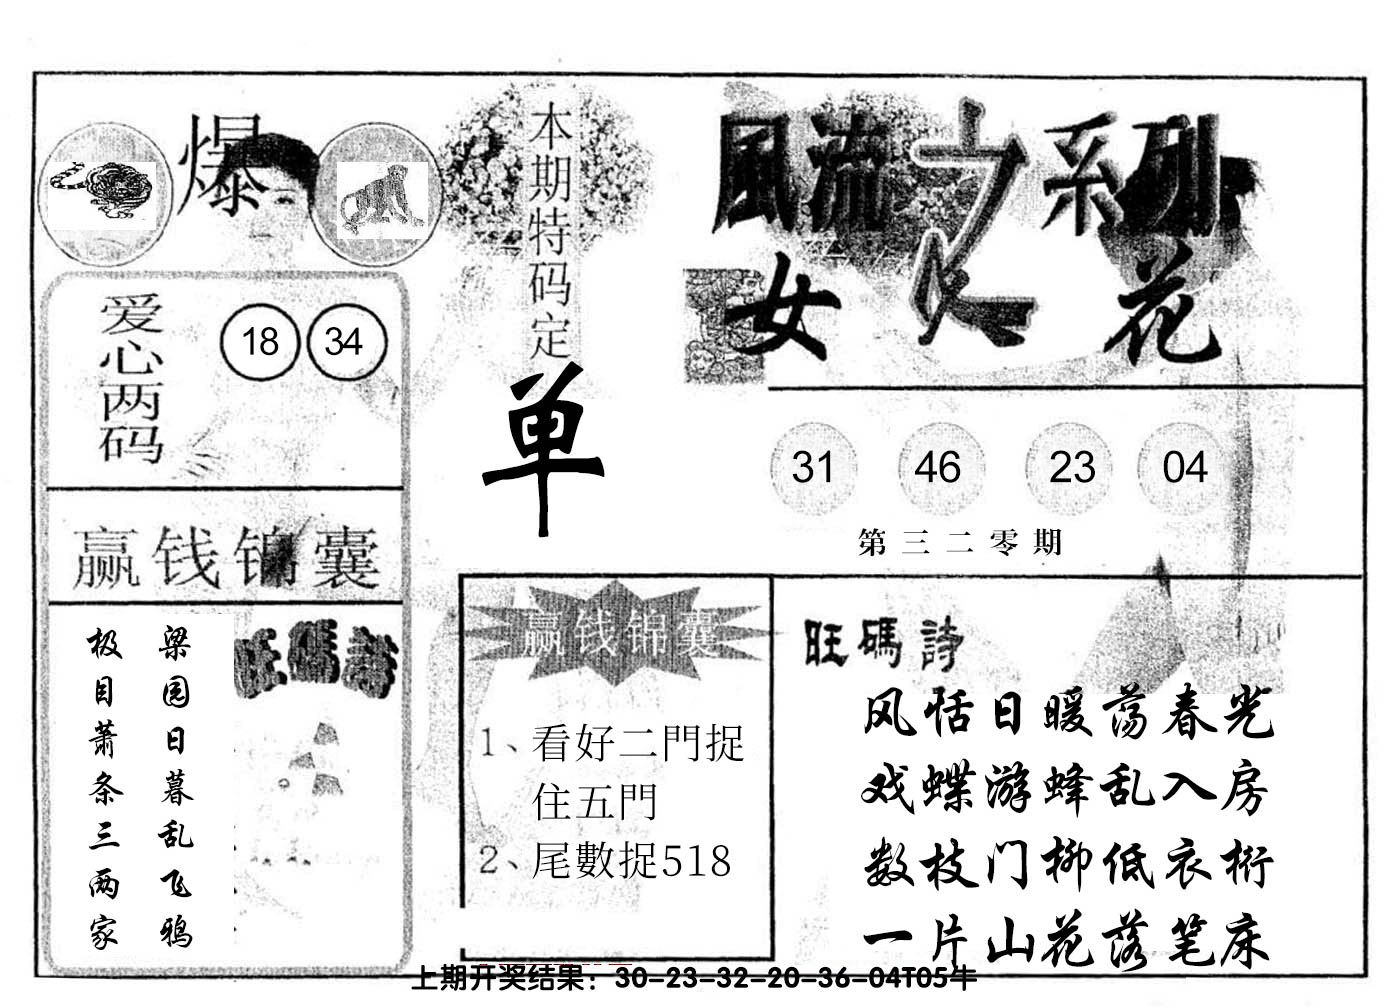 爆
本期特码定
单
風流之系列
女人花
爱心两码
18 34
31 46 23 04
第三二零期
赢钱锦囊
梁园日暮乱飞鸦
极目萧条三两家
旺碼詩
赢钱锦囊
1、看好二門捉
住五門
2、尾數捉518
旺碼詩
风恬日暖荡春光
戏蝶游蜂乱入房
数枝门柳低衣桁
一片山花落笔床
上期开奖结果：30-23-32-20-36-04T05牛